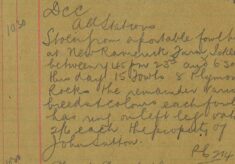 1930
DCC
All Stations
Stolen from a portable fowlh
at New Ramerick Farm,
between 4.45 pm 23rd and 630
this day 15 fowls 8 Plymou
Rocks the remainder vario
breeds & colours each fowl
has ring on left leg val
2/6 each the property of
John Sutton.
PC 274